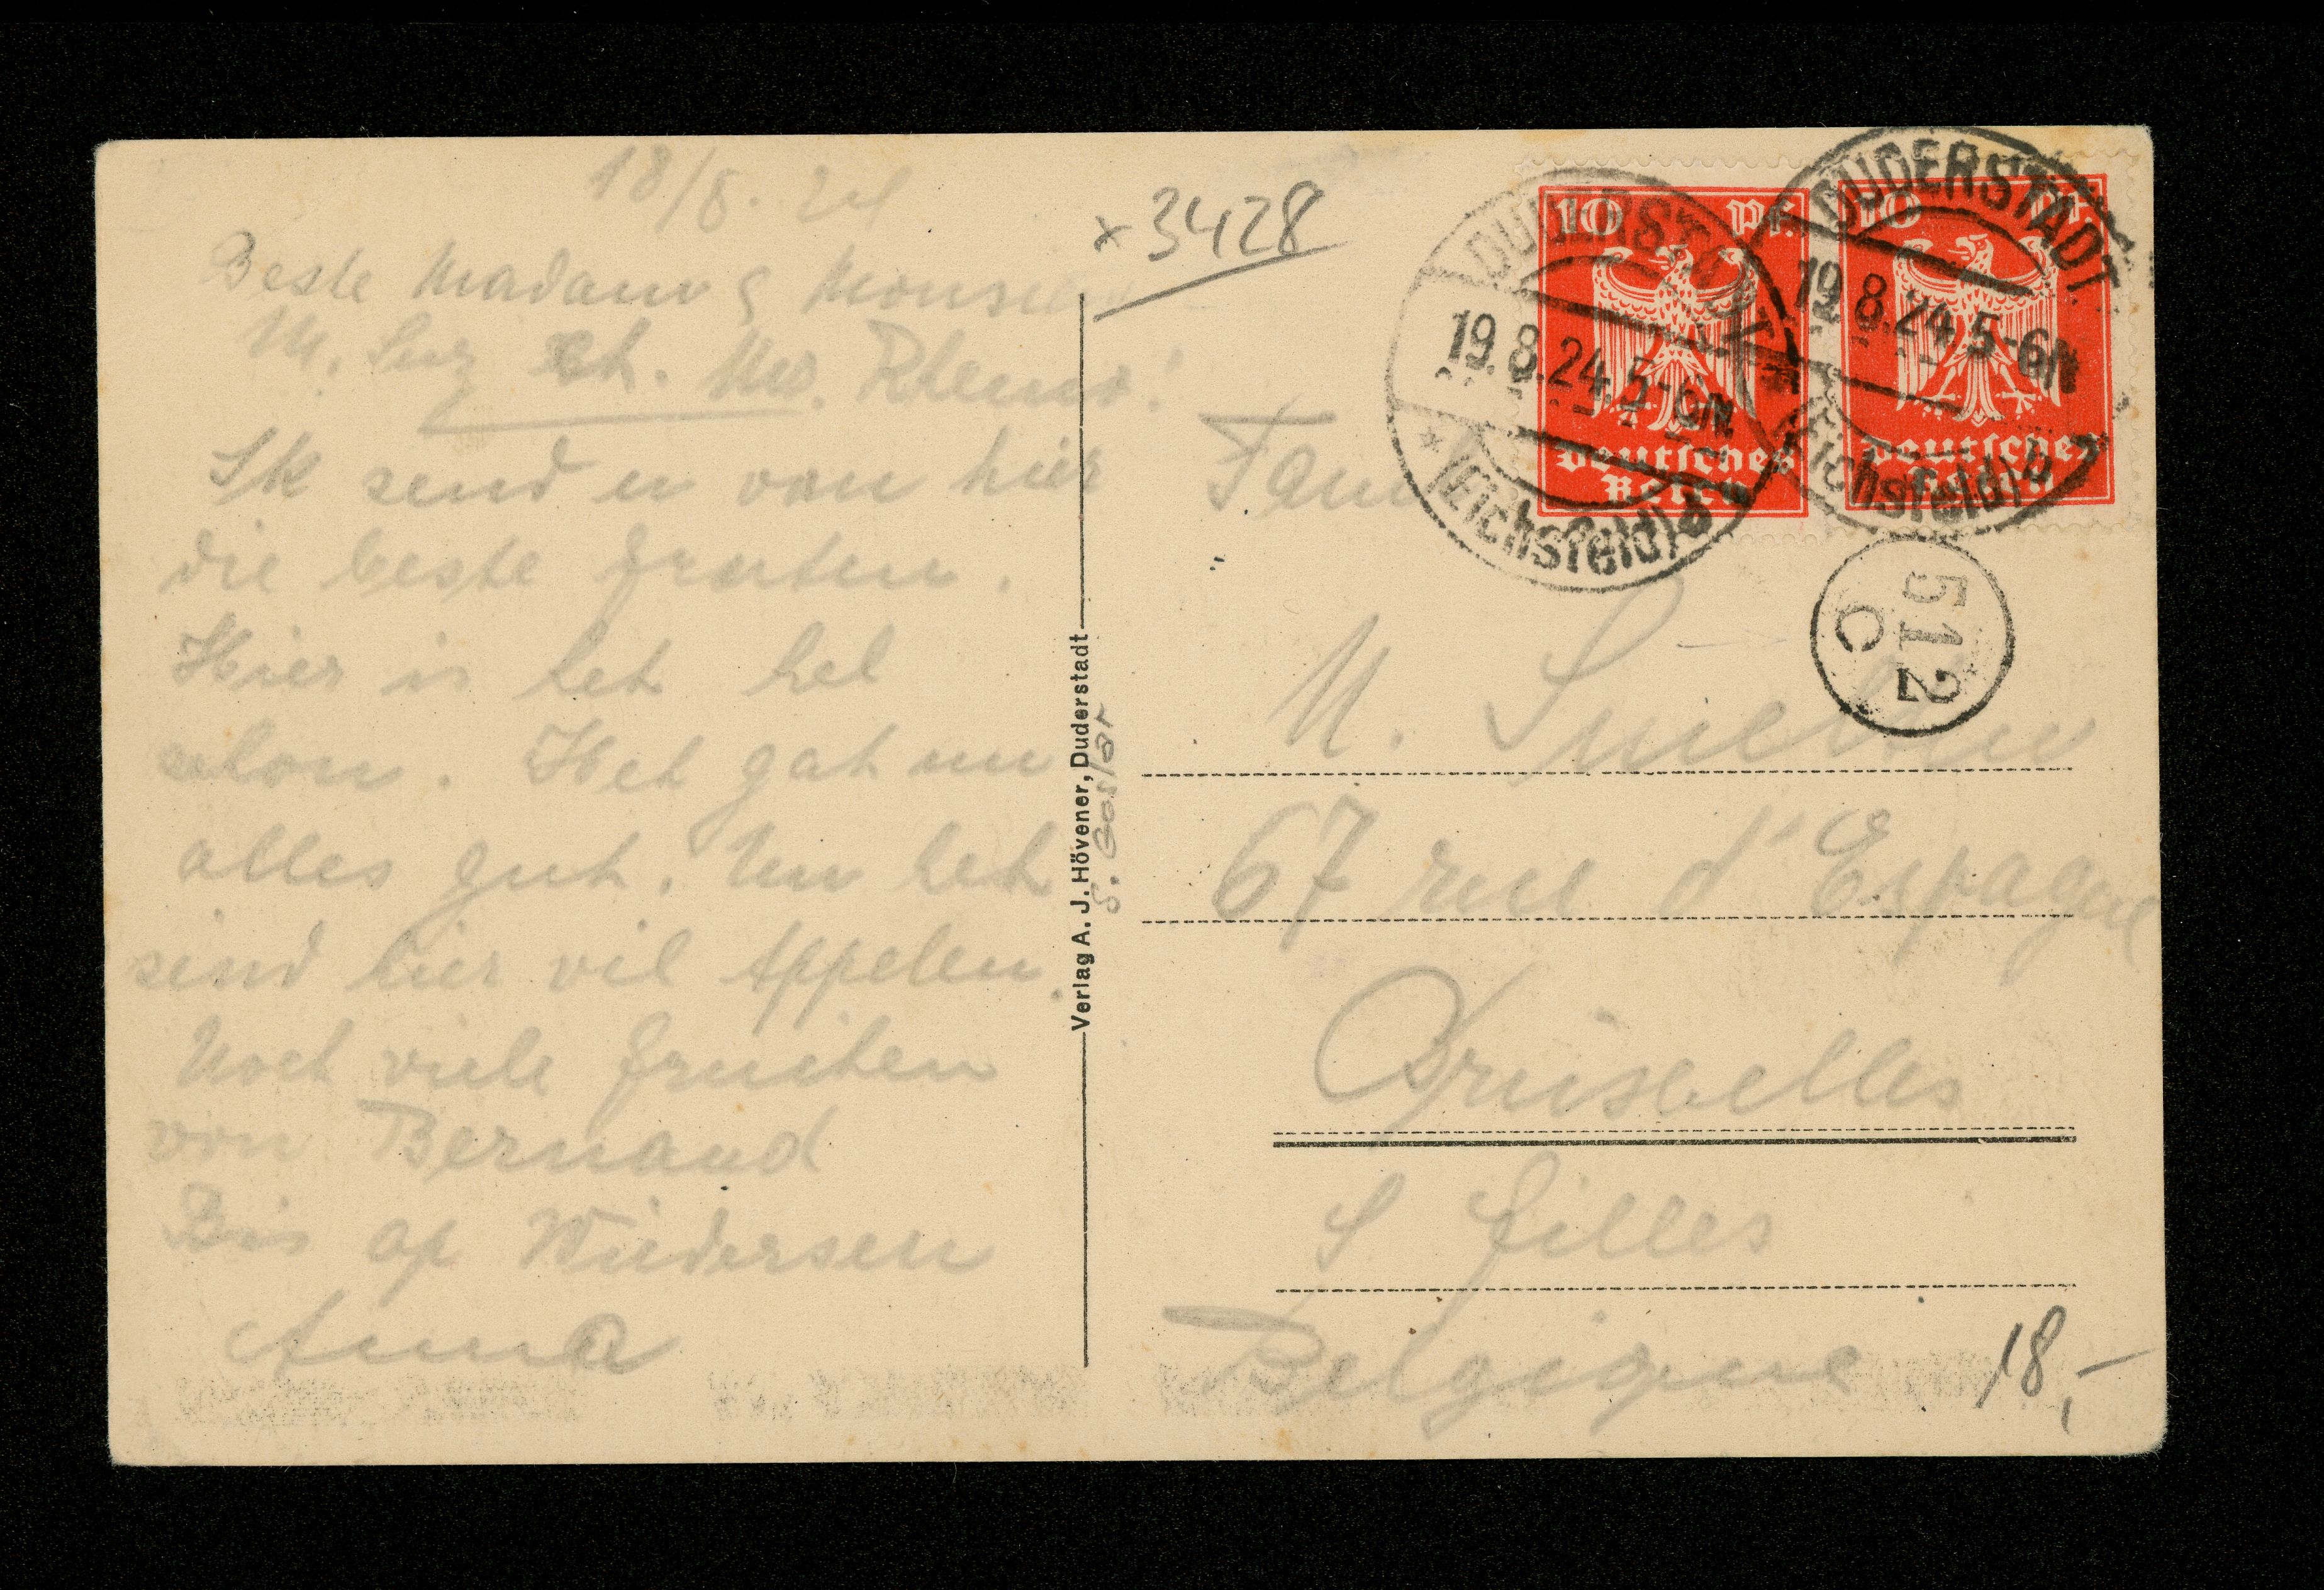 18/8. 24
Beste Madam & Monsieur
M.
Ik send u van hier
die beste gruten.
Hier is het hel
schon. Het gah un
alles guh. Un heh
sind hier vil Appelen.
Noch viele gruiten
von Bernaud
Bis op Wiedersen
Anna
× 3428
Verlag A. J. Hövener, Duderstadt
10 Pf.
Deutsches
Reich
10 Pf.
Deutsches
Reich
DUDERSTADT
19.8.24.5-6N
* (Eichsfeld) b
DUDERSTADT
19.8.24.5-6N
(Eichsfeld) b
512
C
M.
67 rue d'Espagne
Bruxelles
S Gilles
Belgique
18,-